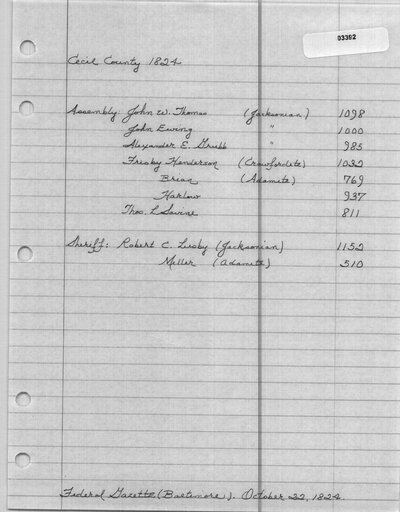 03392
Cecil County 1824
Assembly: John W. Thomas (Jacksonian) 1098
John Ewing " 1000
Alexander E. Grubb " 985
Frisby Henderson (Crawfordite) 1032
Brian (Adamite) 769
Harlow 937
Thos. L Savine 811
Sheriff: Robert C. Lusby (Jacksonian) 1152
Meller (Adamite) 510
Federal Gazette (Baltimore). October 22, 1824